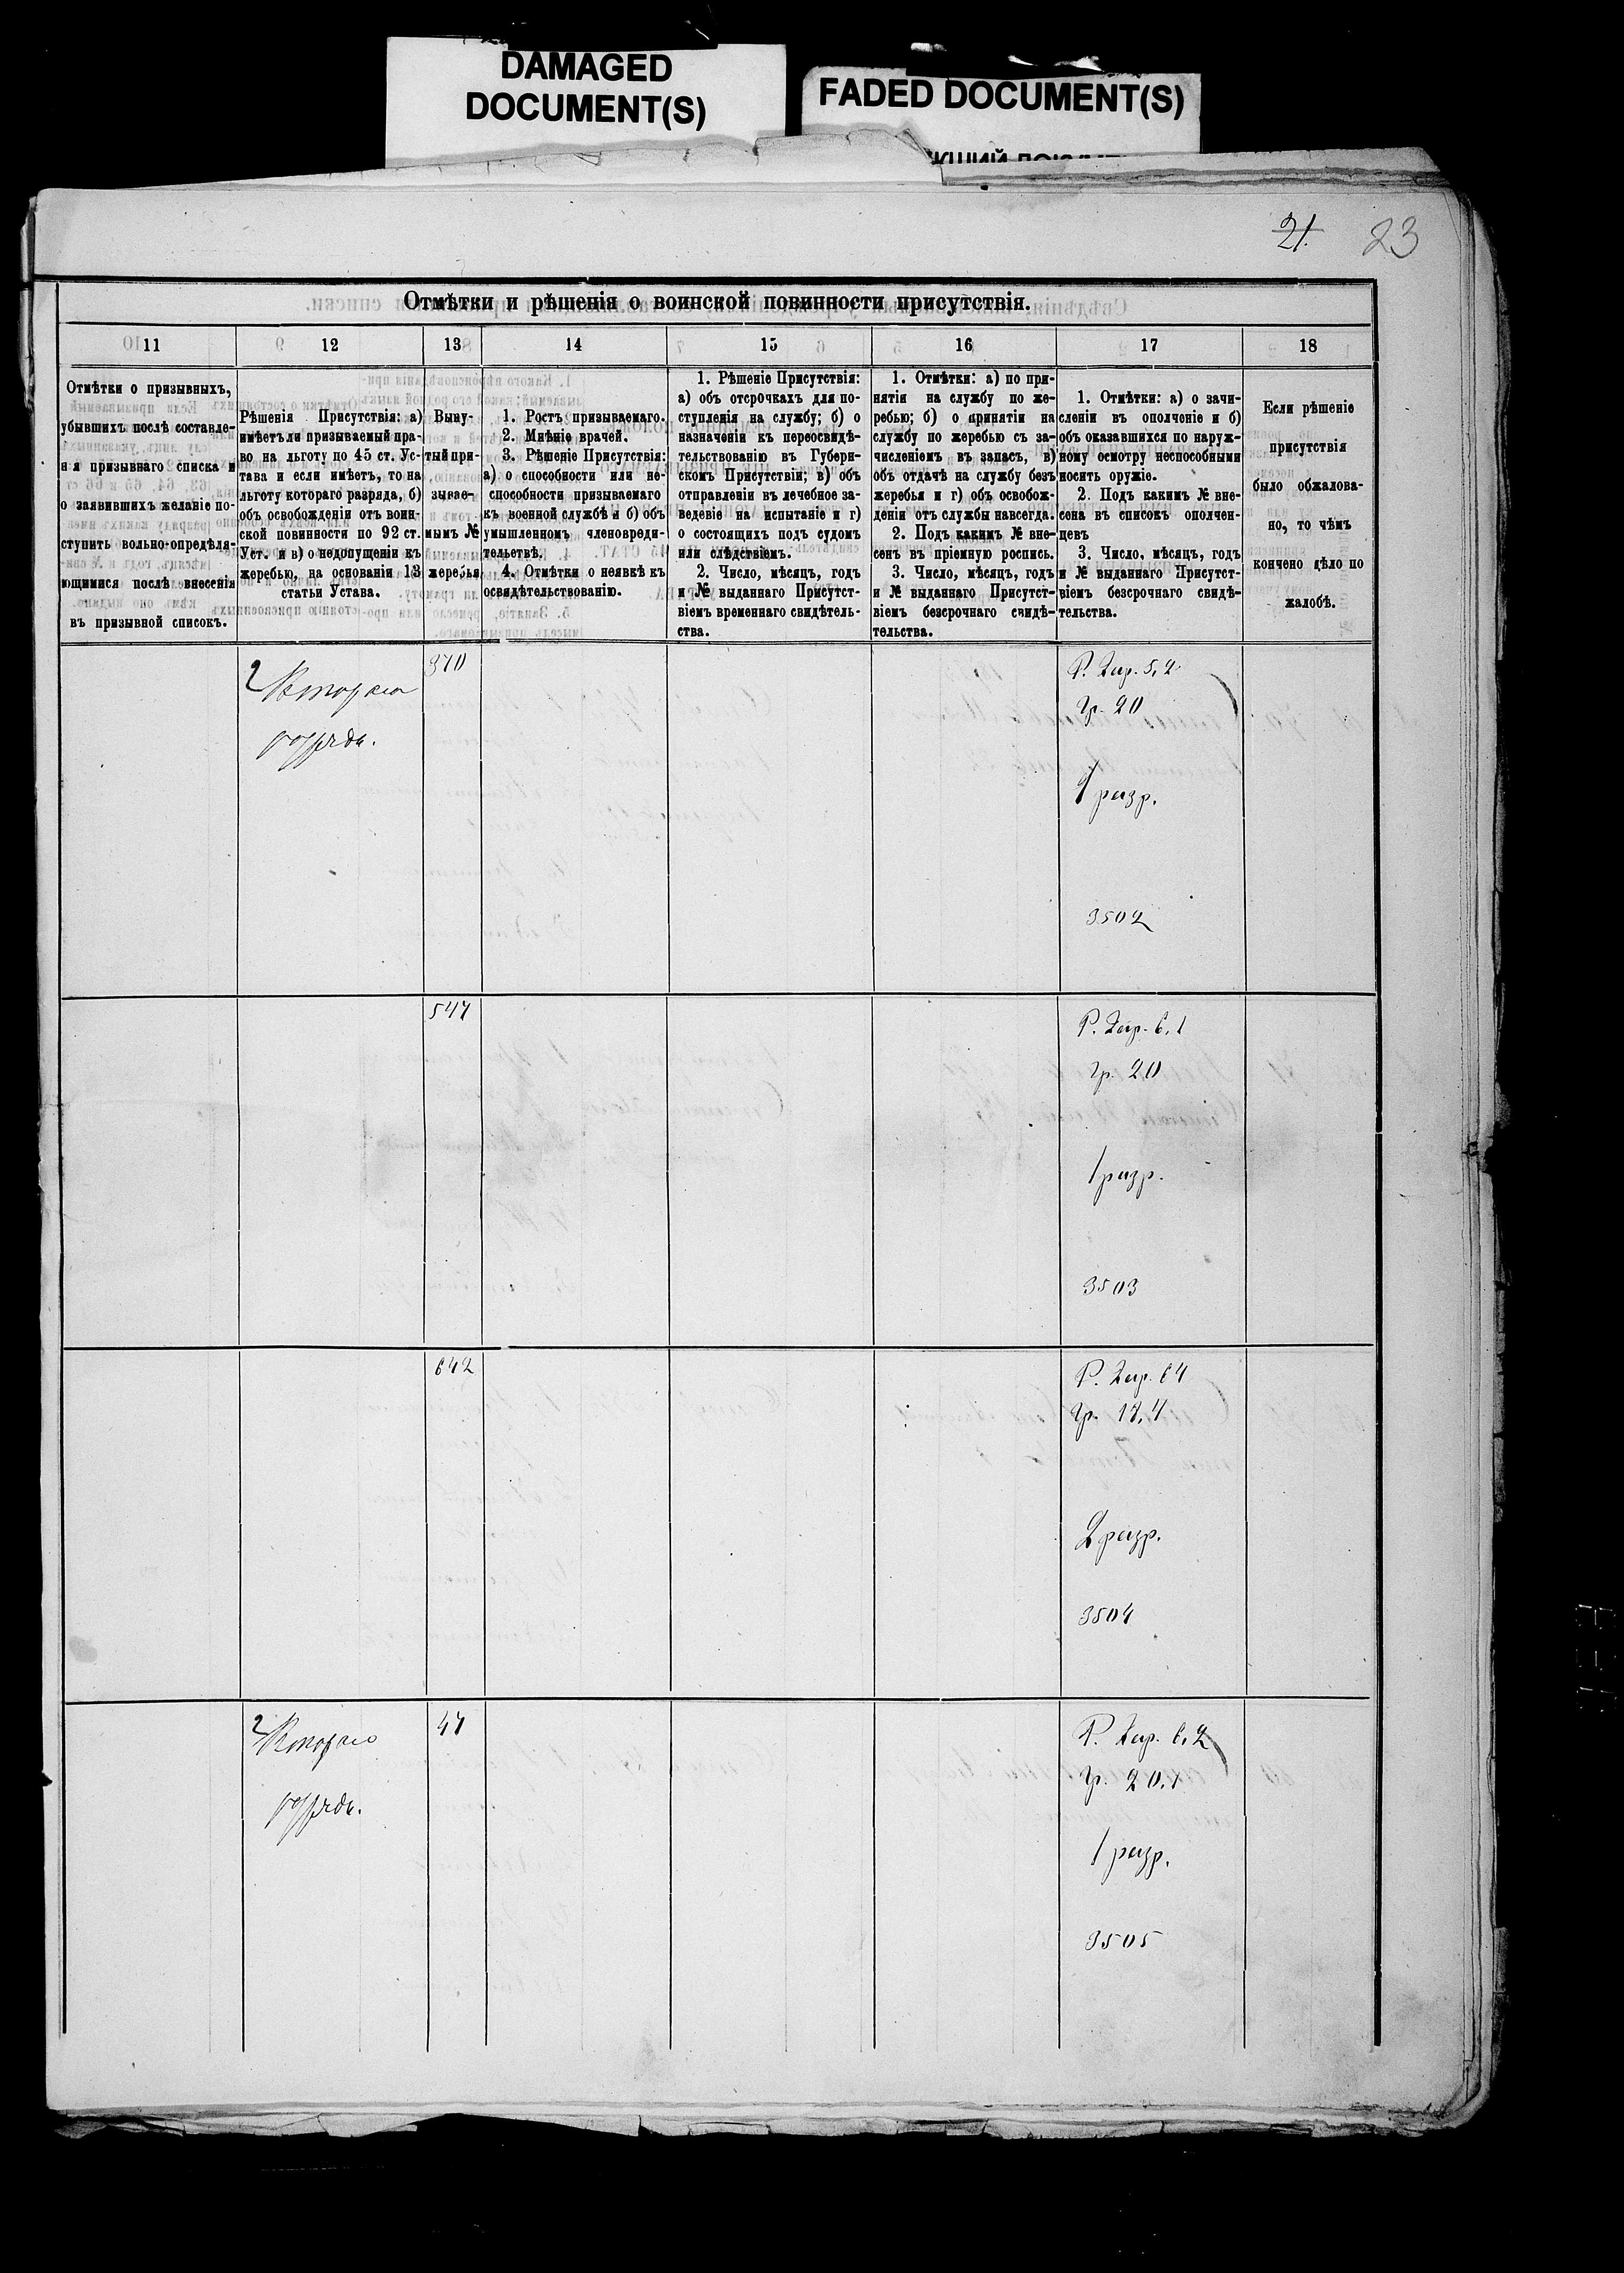 DAMAGED
DOCUMENT(S)
FADED DOCUMENT(S)
21. 23
Отмѣтки и рѣшенія о воинской повинности присутствія.
11 12 13 14 15 16 17 18
Отмѣтки о призывныхъ,
убывшихъ послѣ составле-
нія призывнаго списка и
о заявившихъ желаніе по-
ступить вольно-опредѣля-
ющимися послѣ внесенія
въ призывной списокъ.
Рѣшенія Присутствія: а)
имѣетъ ли призываемый пра-
во на льготу по 45 ст. Ус-
тава и если имѣетъ, то на
льготу котораго разряда, б)
объ освобожденіи отъ воин-
ской повинности по 92 ст.
Уст. и в) о недопущеніи къ
жеребью, на основаніи 13
статьи Устава.
Выну-
тый при-
зывае-
мымъ №
жеребья
1. Ростъ призываемаго.
2. Мнѣніе врачей.
3. Рѣшеніе Присутствія:
а) о способности или не-
способности призываемаго
къ военной службѣ и б) объ
умышленномъ членовреди-
тельетвѣ.
4. Отмѣтки о неявкѣ къ
освидѣтельствованію.
1. Рѣшеніе Присутствія:
а) объ отсрочкахъ для по-
ступленія на службу; б) о
назначеніи къ переосвидѣ-
тельствованію въ Губерн-
скомъ Присутствіи; в) объ
отправленіи въ лечебное за-
веденіе на испытаніе и г)
о состоящихъ подъ судомъ
или слѣдствіемъ.
2. Число, мѣсяцъ, годъ
и № выданнаго Присутст-
віемъ временнаго свидѣтель-
ства.
1. Отмѣтки: а) по при-
нятіи на службу по же-
ребью; б) о принятіи на
службу по жеребью съ за-
численіемъ въ запасъ, в)
объ отдачѣ на службу безъ
жеребья и г) объ освобож-
деніи отъ службы навсегда.
2. Подъ какимъ № вне-
сенъ въ пріемную роспись.
3. Число, мѣсяцъ, годъ
и № выданнаго Присутст-
віемъ безсрочнаго свидѣ-
тельства.
1. Отмѣтки: а) о зачи-
сленіи въ ополченіе и б)
объ оказавшихся по наруж-
ному осмотру неспособными
носить оружіе.
2. Подъ какимъ № вне-
сена въ списокъ ополчен-
цевъ
3. Число, мѣсяцъ, годъ
и № выданнаго Присутст-
віемъ безсрочнаго свидѣ-
тельства.
Если рѣшеніе
присутствія
было обжалова-
но, то чѣмъ
кончено дѣло по
жалобѣ.
2 Втораго
разряда.
370
Р. Хар. 5,2
Гр. 20
1 разр.
3502
547
Р. Хар. 6,1
Гр. 20
1 разр.
3503
642
Р. Хар. 64
Гр. 17,4
2 разр.
3504
2 Втораго
разряда.
47
Р. Хар. 6,2
Гр. 20,1
1 разр.
3505